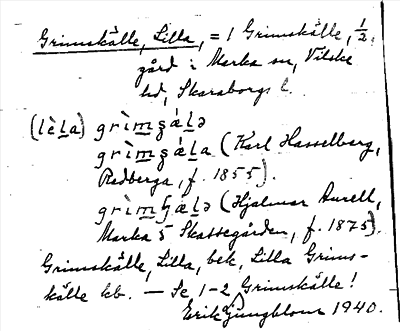 Grimskälle, Lilla, = 1 Grimskälle, 1/2,
gård i Marka sn, Vilske
hd, Skaraborgs l.
(lèla) grìmʂǽlə
grìmʂǽla (Karl Hasselberg,
Redberga, f. 1855).
grìmɧǽlə (Hjalmar Aurell,
Marka 5 Skattegården, f. 1875).
Grimskälle, Lilla, bek. Lilla Grims-
källe kb. — Se 1-2 Grimskälle!
Erik Ljungblom 1940.